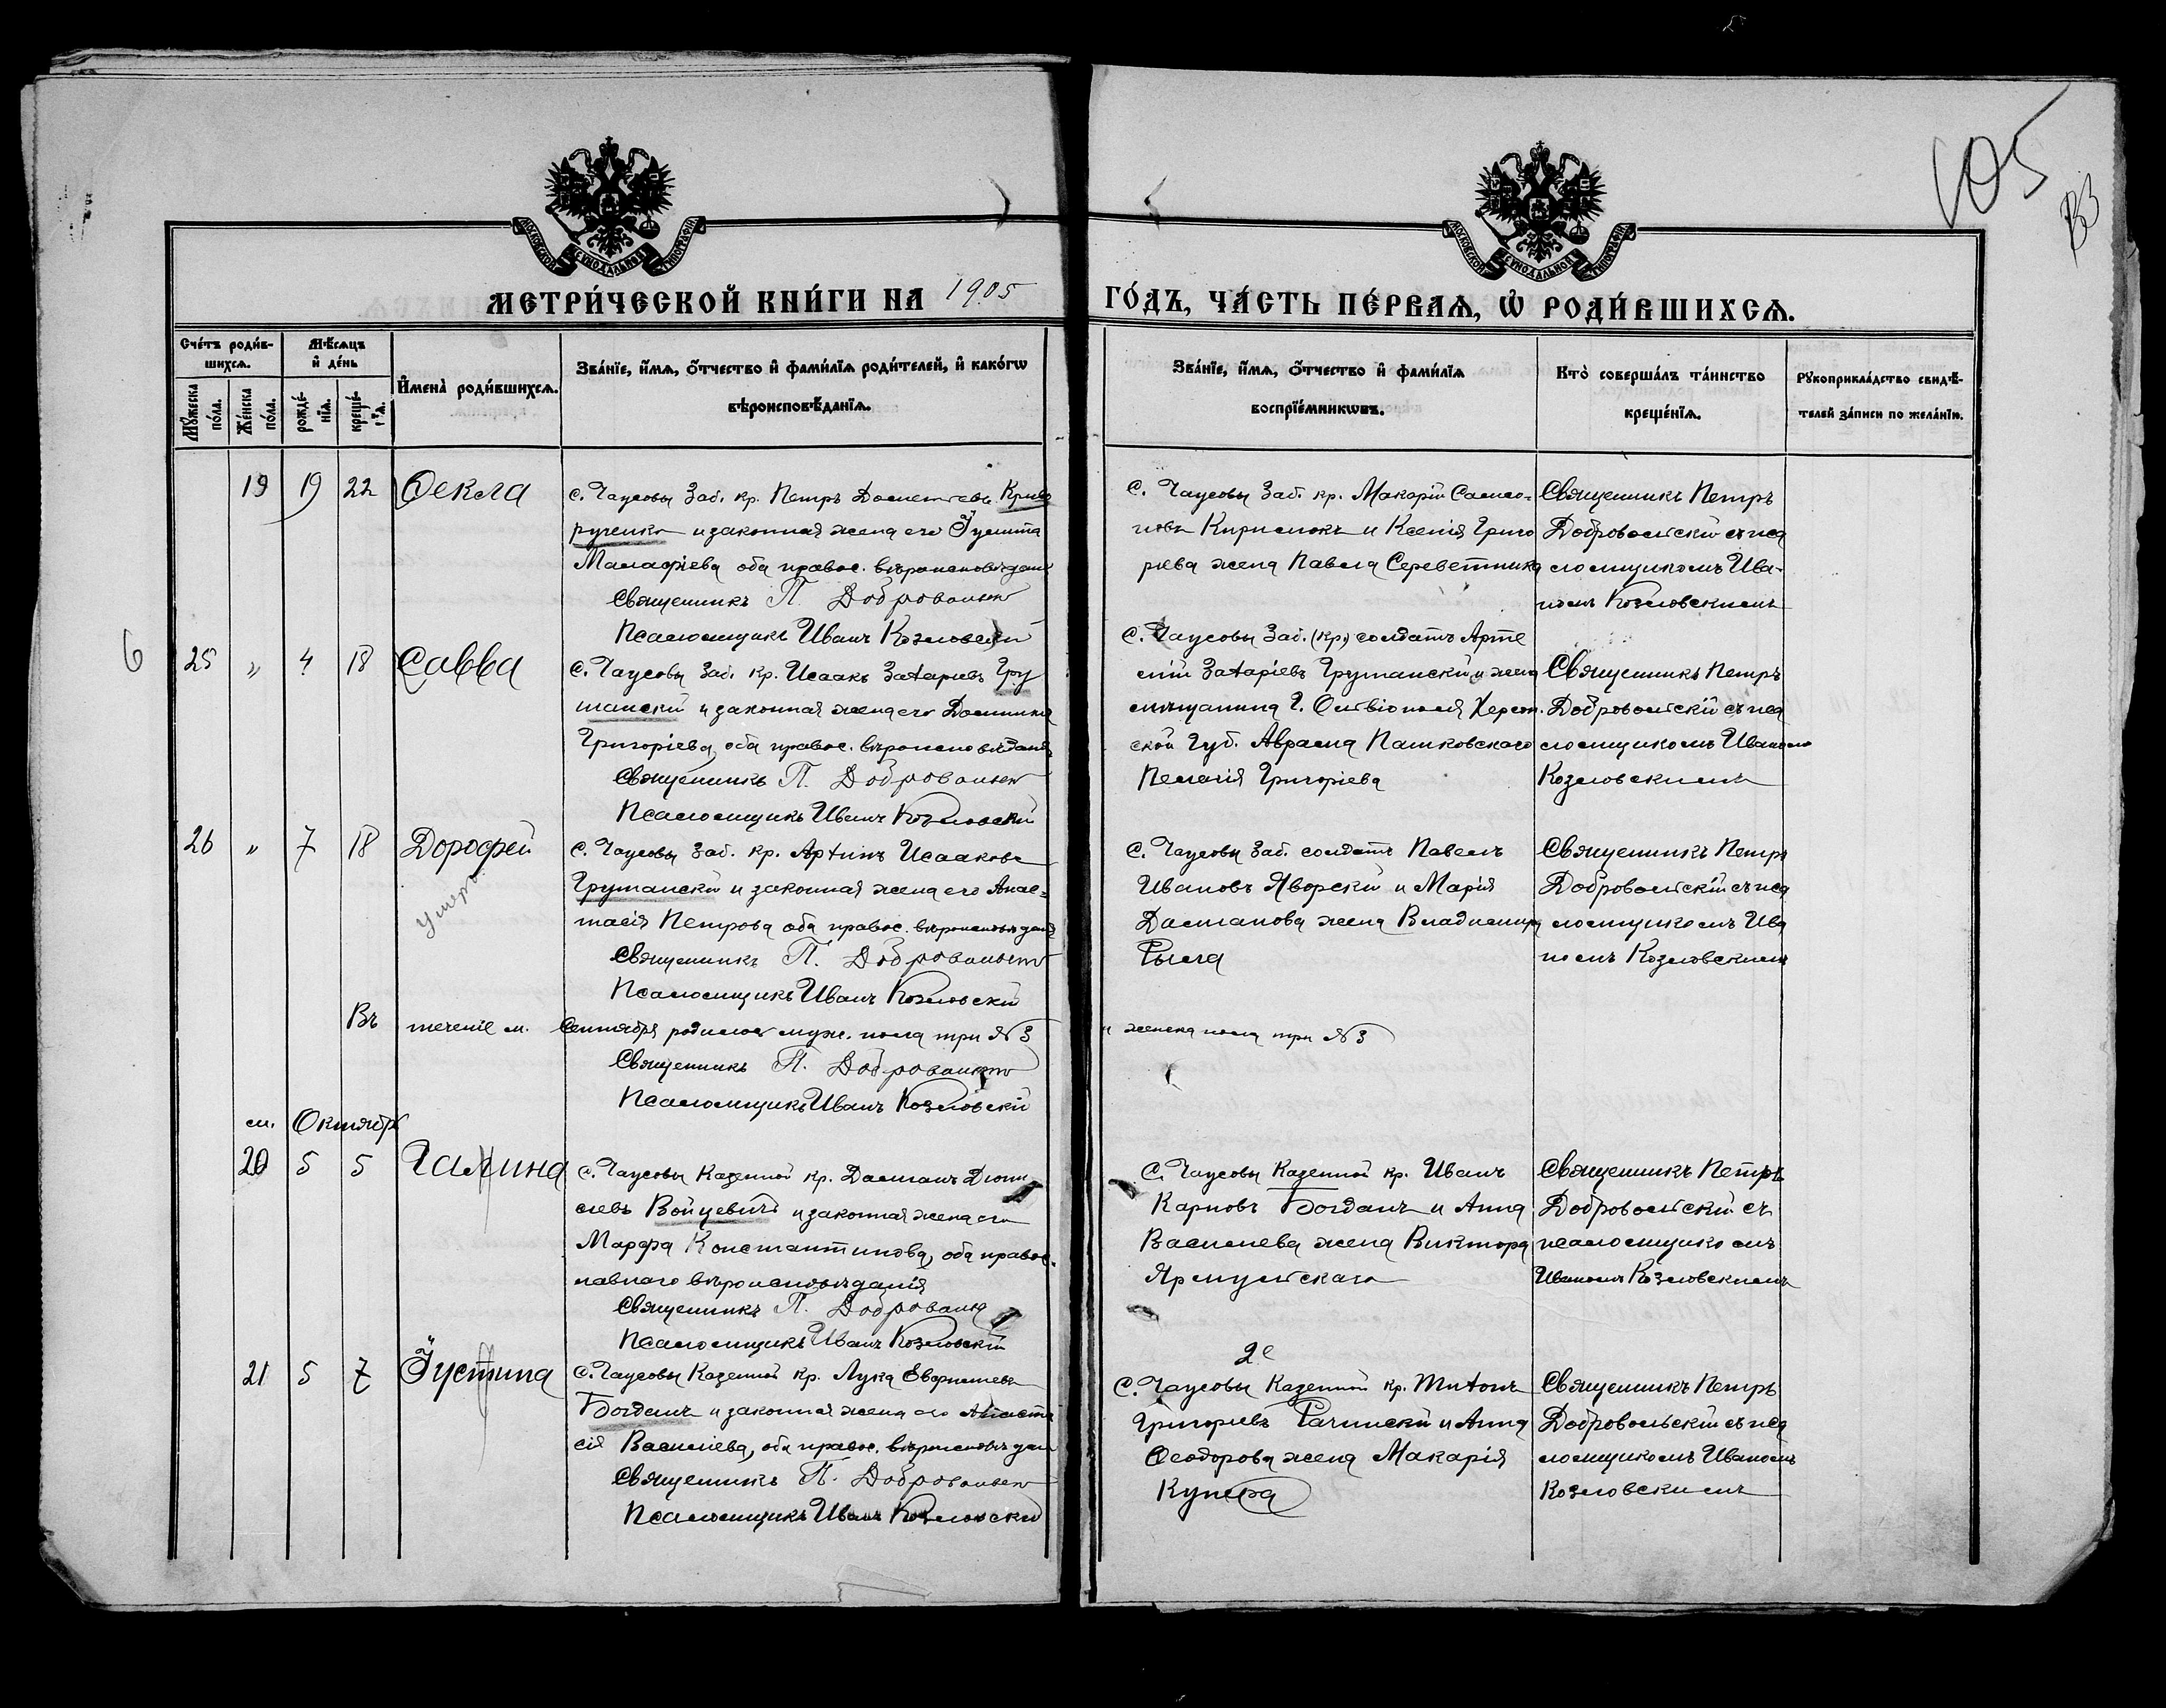 105
МЕТРИ́ЧЕСКОЙ КНИ́ГИ НА 1905 ГО́ДЪ, ЧА́СТЬ ПЕ́РВАѦ, Ѡ РОДИ́ВШИХСѦ.
Сче́тъ роди́в-
шихсѧ.
Му́жеска по́ла.
Же́нска по́ла.
Мѣсяцъ
и де́нь
рожде́-
нїѧ.
креще́-
нїѧ.
Имена̀ роди́вшихсѧ.
Зва́нїе, и́мѧ, о́тчество и фами́лїѧ роди́телей, и како́гѡ
вѣроисповѣ́данїѧ.
Зва́нїе, и́мѧ, о́тчество и фами́лїѧ
воспрїе́мникѡвъ.
Кто̀ соверша́лъ та́инство
креще́нїѧ.
Рꙋкоприкла́дство свидѣ́-
телей за́писи по жела́нїю.
19 19 22 Ѳекла
с. Чаусовы Заб. кр. Петръ Крив
рученко и законная жена его Іустина
Малафіева оба правос. вѣроисповѣдані
Священникъ П. Добровольск
Псаломщикъ Иванъ Козловскій
с. Чаусовы Заб. кр. Макарій Самсо-
новъ и Ксенія Григо
рьева жена Павла Середетника
Священникъ Петръ
Добровольскій съ пса
ломщикомъ Ива-
номъ Козловскимъ
6
25 " 4 18 Савва
с. Чаусовы Заб. кр. Исаакъ Захаріевъ Гру
шанскій и законная жена его Домникія
Григоріева, оба правос. вѣроисповѣданія
Священникъ П. Добровольск
Псаломщикъ Иванъ Козловскій
с. Чаусовы Заб. (кр.) солдатъ Арте
мій Захаріевъ Грушанскій и жена
мѣщанина Г. Овидіополя Херсон.
ской Губ. Авраама Пашковскаго
Пелагія Григоріева
Священникъ Петръ
Добровольскій съ пса
ломщикомъ Иваномъ
Козловскимъ
26 " 7 18 Дорофей
умеръ
с. Чаусовы Заб. кр. Архипъ Исааковъ
Грушанскій и законная жена его Анас-
тасія Петрова оба правос. вѣроисповѣдані
Священникъ П. Добровольск
Псаломщикъ Иванъ Козловскій
с. Чаусовы Заб. солдатъ Павелъ
Ивановъ Яворскій и Марія
Дамианова жена Владимира
Священникъ Петръ
Добровольскій съ пса
ломщикомъ Ива
номъ Козловскимъ
Въ теченіе м. Сентября родилось муж. пола три №3 и женска пола три №3
Священникъ П. Добровольск
Псаломщикъ Иванъ Козловскій
м. Октябрь
20 5 5 Галина
с. Чаусовы Казенной кр. Даміанъ Діони
сіевъ Войцевичъ и законная жена его
Марфа Константинова, оба правос.
лавнаго вѣроисповѣданія
Священникъ П. Добровольск
Псаломщикъ Иванъ Козловскій
с. Чаусовы Казенной кр. Иванъ
Карповъ Богданъ и Анна
Васильева жена Виктора
Ярмульскаго
Священникъ Петръ
Добровольскій съ
псаломщикомъ
Иваномъ Козловскимъ
21 5 7 Іустина
с. Чаусовы Казенной кр. Лука
Богданъ и законная жена его Анаста
сія Василіева, оба правос. вѣроисповѣдан
Священникъ П. Добровольск
Псаломщикъ Иванъ Козловскій
2е
с. Чаусовы Казенной кр. Тихонъ
Григорьевъ Рачинскій и Анна
Ѳеодорова жена Макарія
Священникъ Петръ
Добровольскій съ пса
ломщикомъ Иваномъ
Козловскимъ